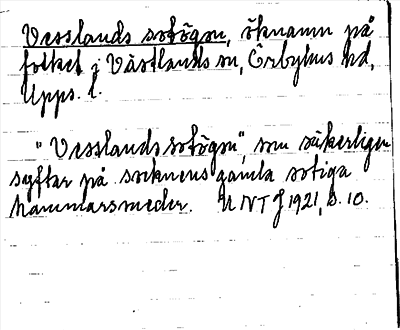 Vesslands sotögon, öknamn på
folket i Västlands sn, Örbyhus hd,
Upps. l.
"Vesslands sotögon", som säkerligen
syftar på socknens gamla sotiga
hammarsmeder. UNTJ 1921, s. 10.